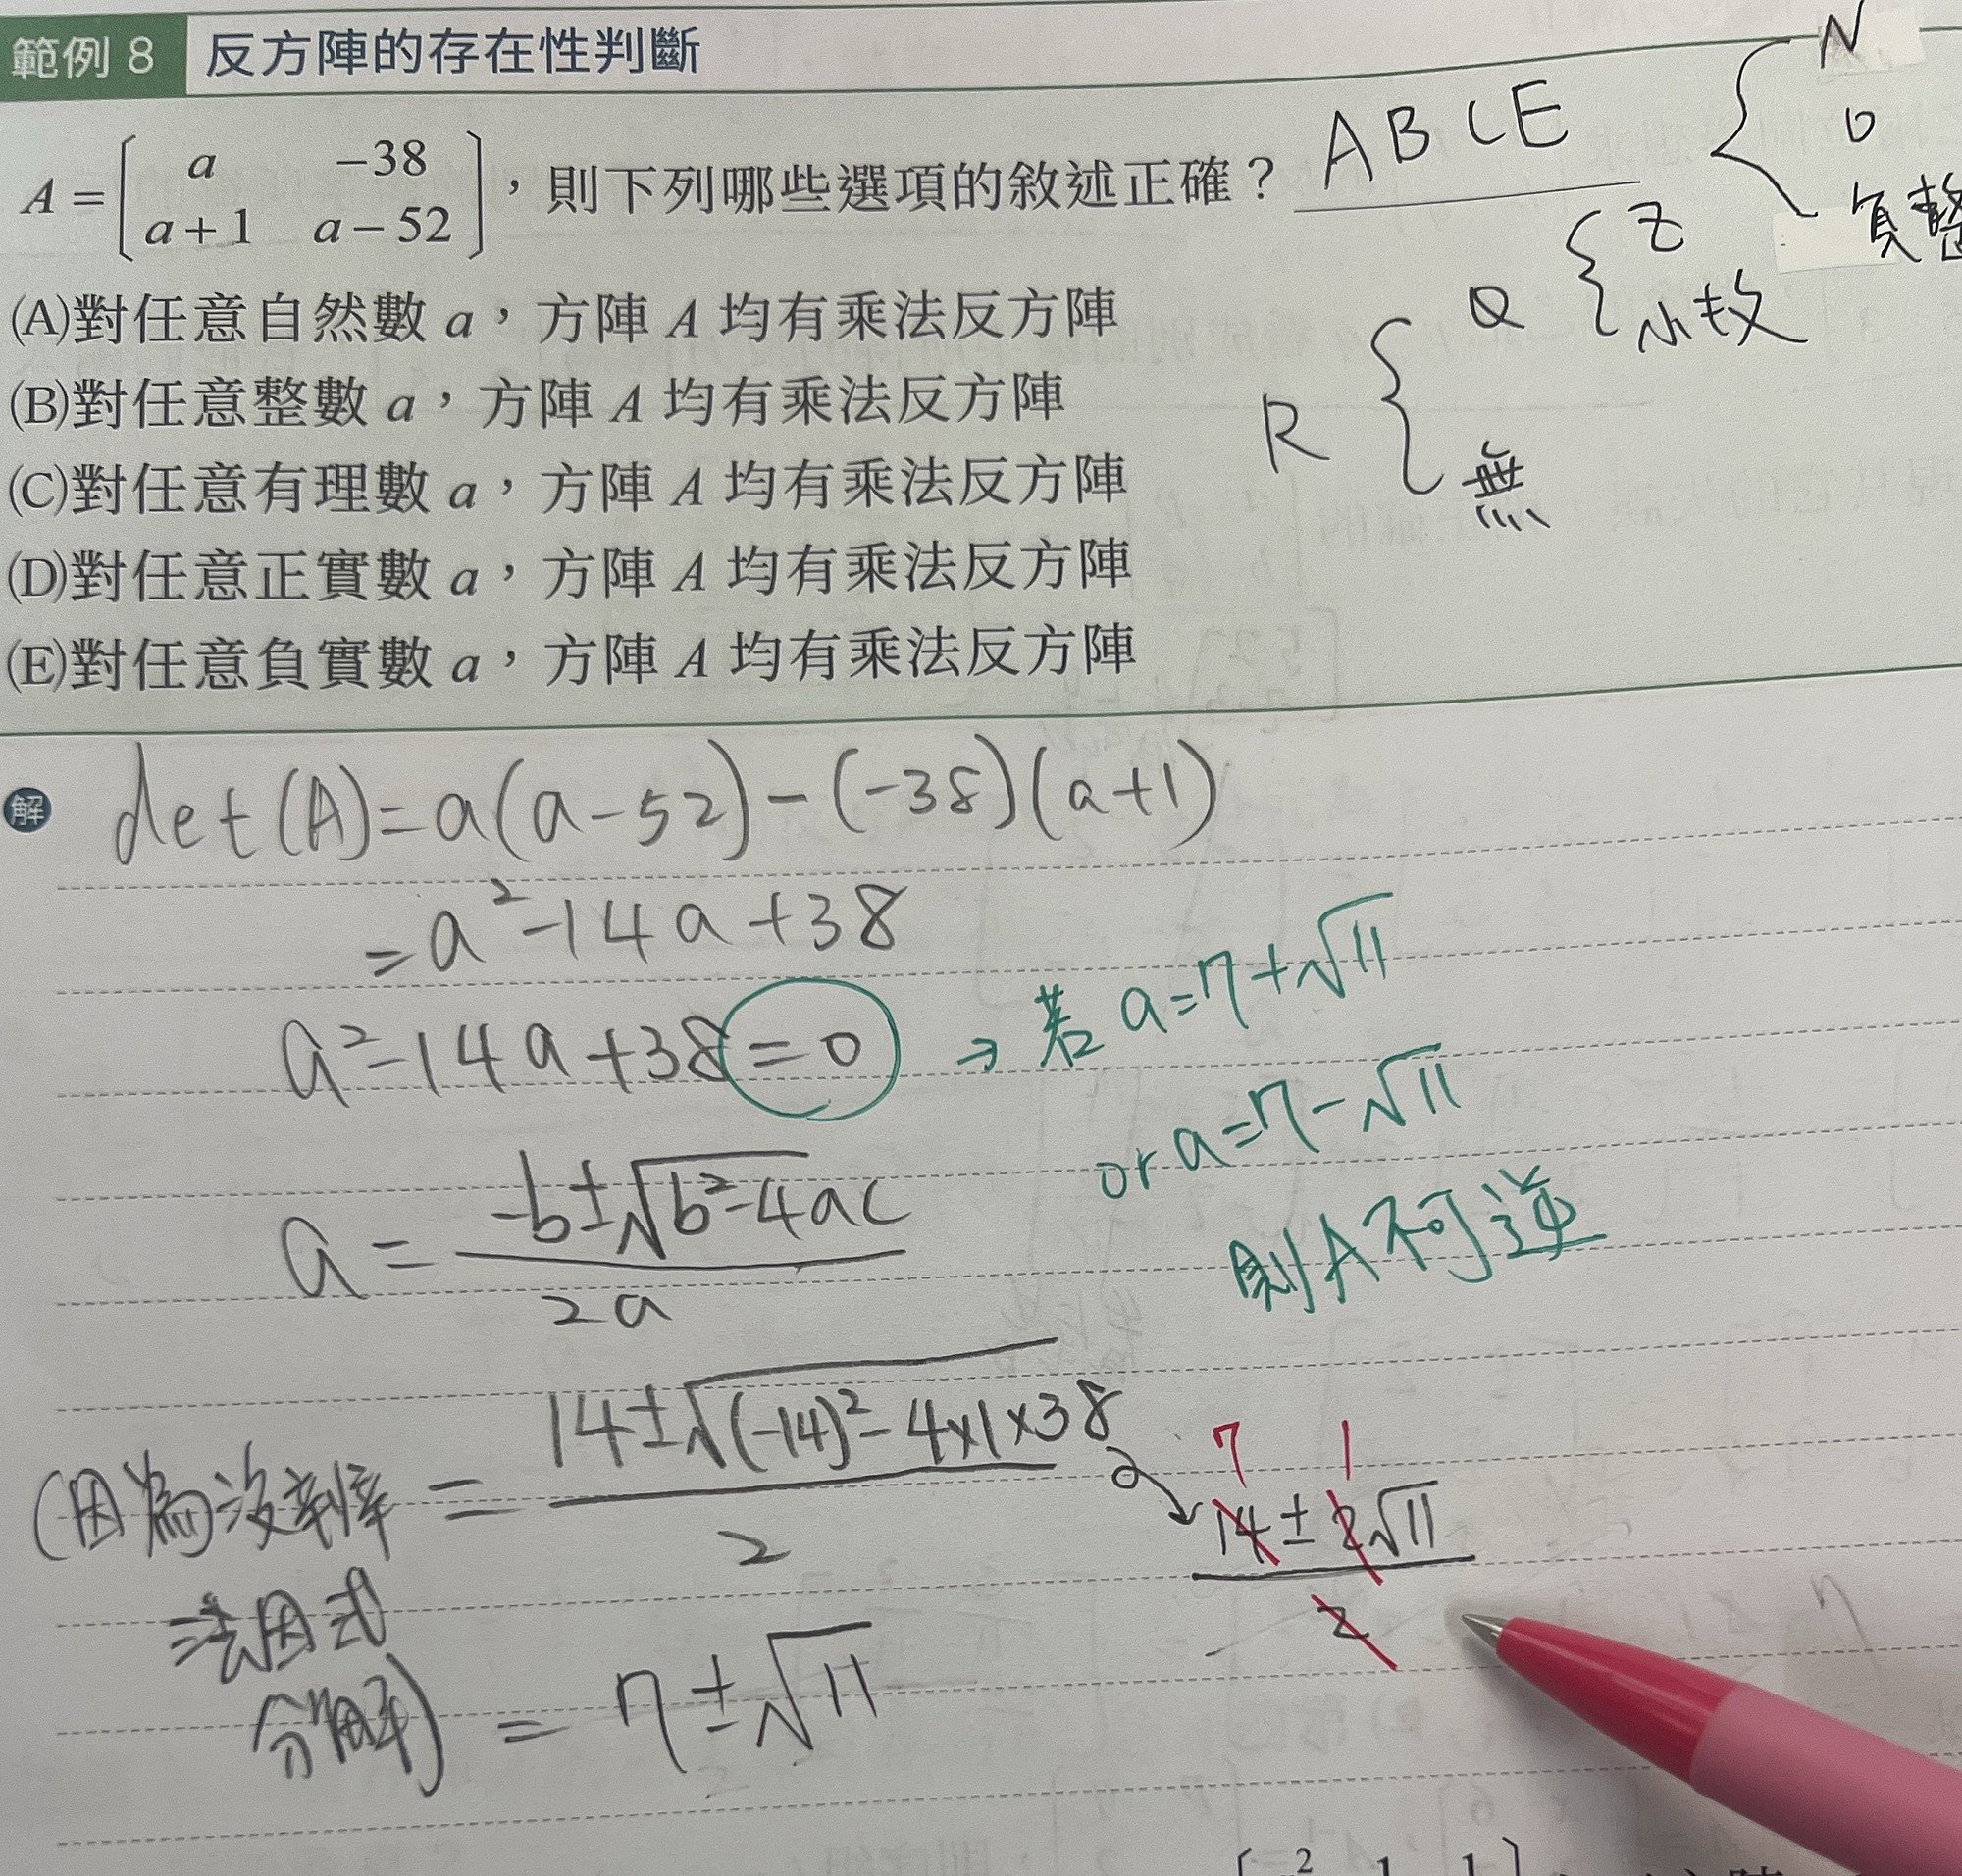 範例 8 反方陣的存在性判斷
A = [ a -38
a+1 a-52 ],則下列哪些選項的敘述正確? ABCE
(A)對任意自然數 a,方陣 A 均有乘法反方陣
(B)對任意整數 a,方陣 A 均有乘法反方陣
(C)對任意有理數 a,方陣 A 均有乘法反方陣
(D)對任意正實數 a,方陣 A 均有乘法反方陣
(E)對任意負實數 a,方陣 A 均有乘法反方陣
R { Q
無
{ Z
小数
{ N
0
負整
解 det(A)=a(a-52)-(-38)(a+1)
=a²-14a+38
a²-14a+38=0 → 若 a=7+√11
or a=7-√11
則A不可逆
a = (-b±√(b²-4ac))/2a
= (14±√((-14)²-4×1×38))/2
7 1
(14±2√11)/2
(因為沒辦
法因式
分解)
= 7±√11